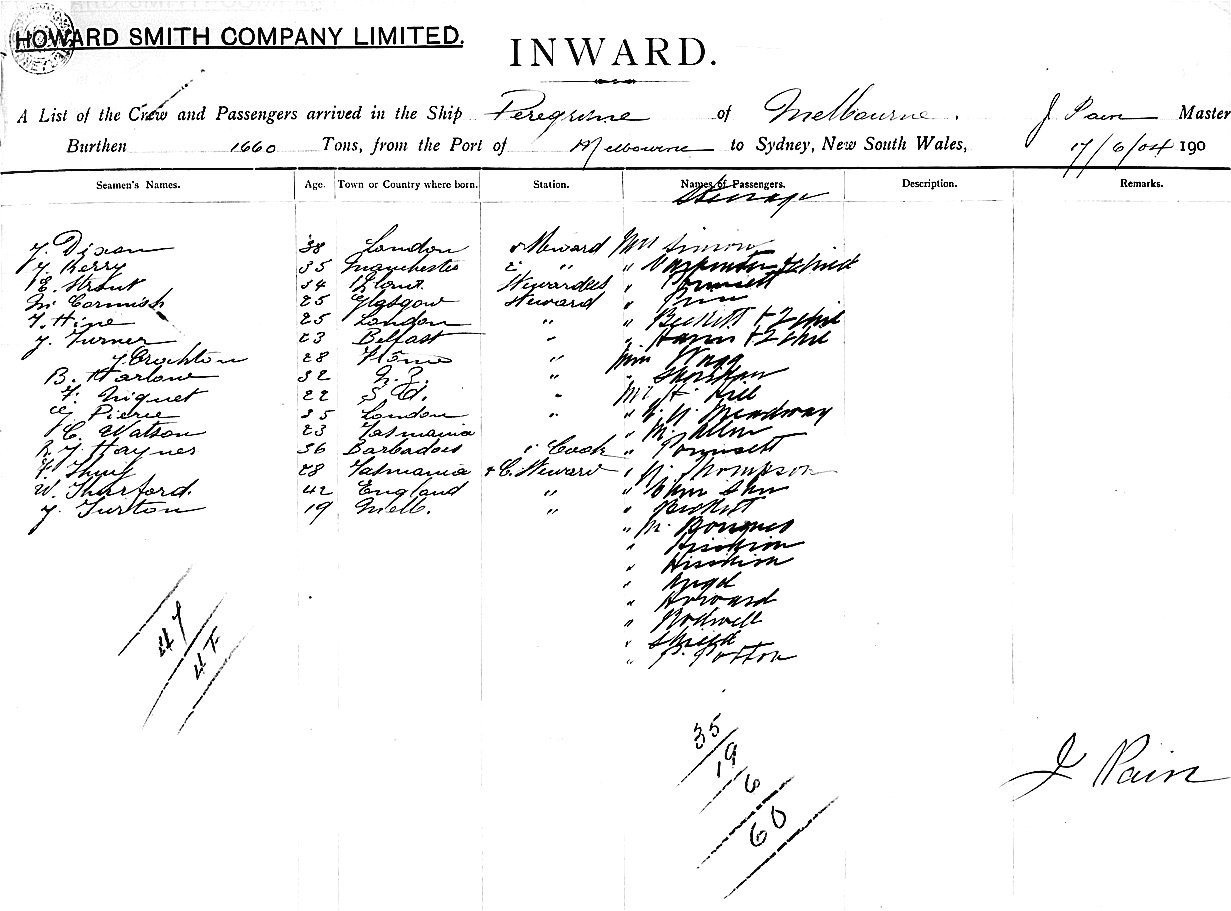 HOWARD SMITH COMPANY LIMITED.
INWARD.
A List of the Crew and Passengers arrived in the Ship Peregrine of Melbourne. J Pain Master
Burthen 1660 Tons, from the Port of Melbourne to Sydney, New South Wales, 17/6/04 190
Seamen's Names. Age. Town or Country where born. Station. Names of Passengers. Description. Remarks.
Steerage
J. Dixon 38 London Steward Mrs Simon
J. Kerry 35 Manchester 2 " " Carpenter & child
E. Strout 34 Stewardess "
McCormish 25 Glasgow Steward "
Hine 25 London " " Beckett + 2 chil
J. Turner 23 Belfast " " Harris + 2 chil
J Crichton 28 " Miss Wagg
B. Harlow 32 N.Z. " " Sheridan
F. Niquet 22 " Mr H. Hill
Pierce 35 London " " Meadway
C. Watson 23 Tasmania " M. Allen
Haynes 36 Barbados Cook "
28 Tasmania C. Steward " Thompson
W. Thurford. 42 England " "
J. Turton 19 Melb. " " Beckett
"
"
"
" Angel
" Howard
" Rodwell
" Shield
" Potton
47
47
35
19
6
60
J Pain